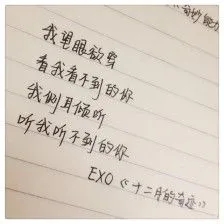 奇妙能力
我望眼欲穿
看我看不到的你
我侧耳倾听
听我听不到的你
EXO《十二月的奇迹》